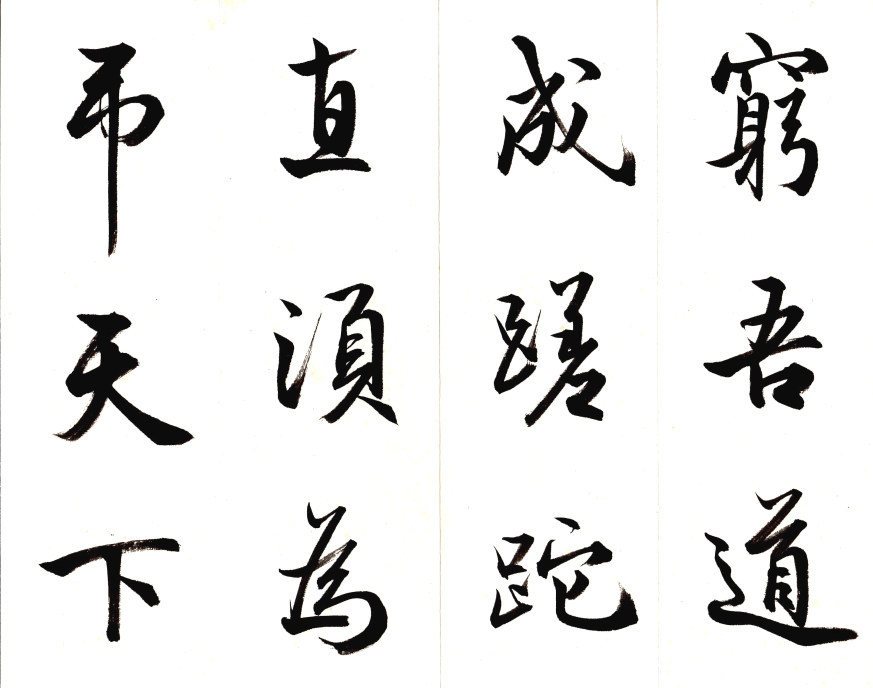 窮吾道
成蹉跎
直須為
弔天下